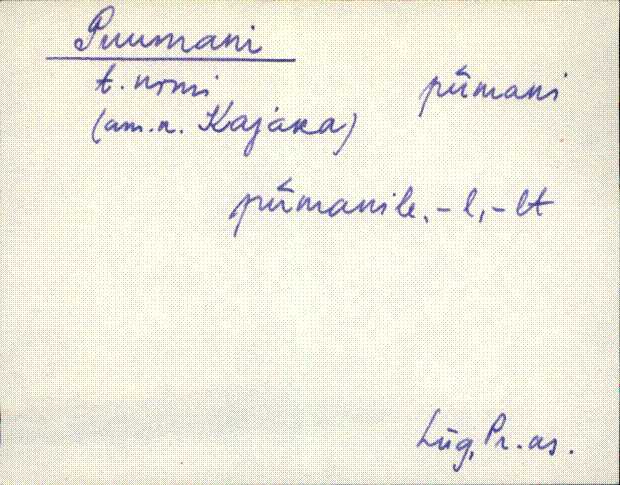 Puumani
t. nimi pǖmani
(am. n. Kajaka)
pǖmanile, -l, -lt
Lüg, Pr. as.